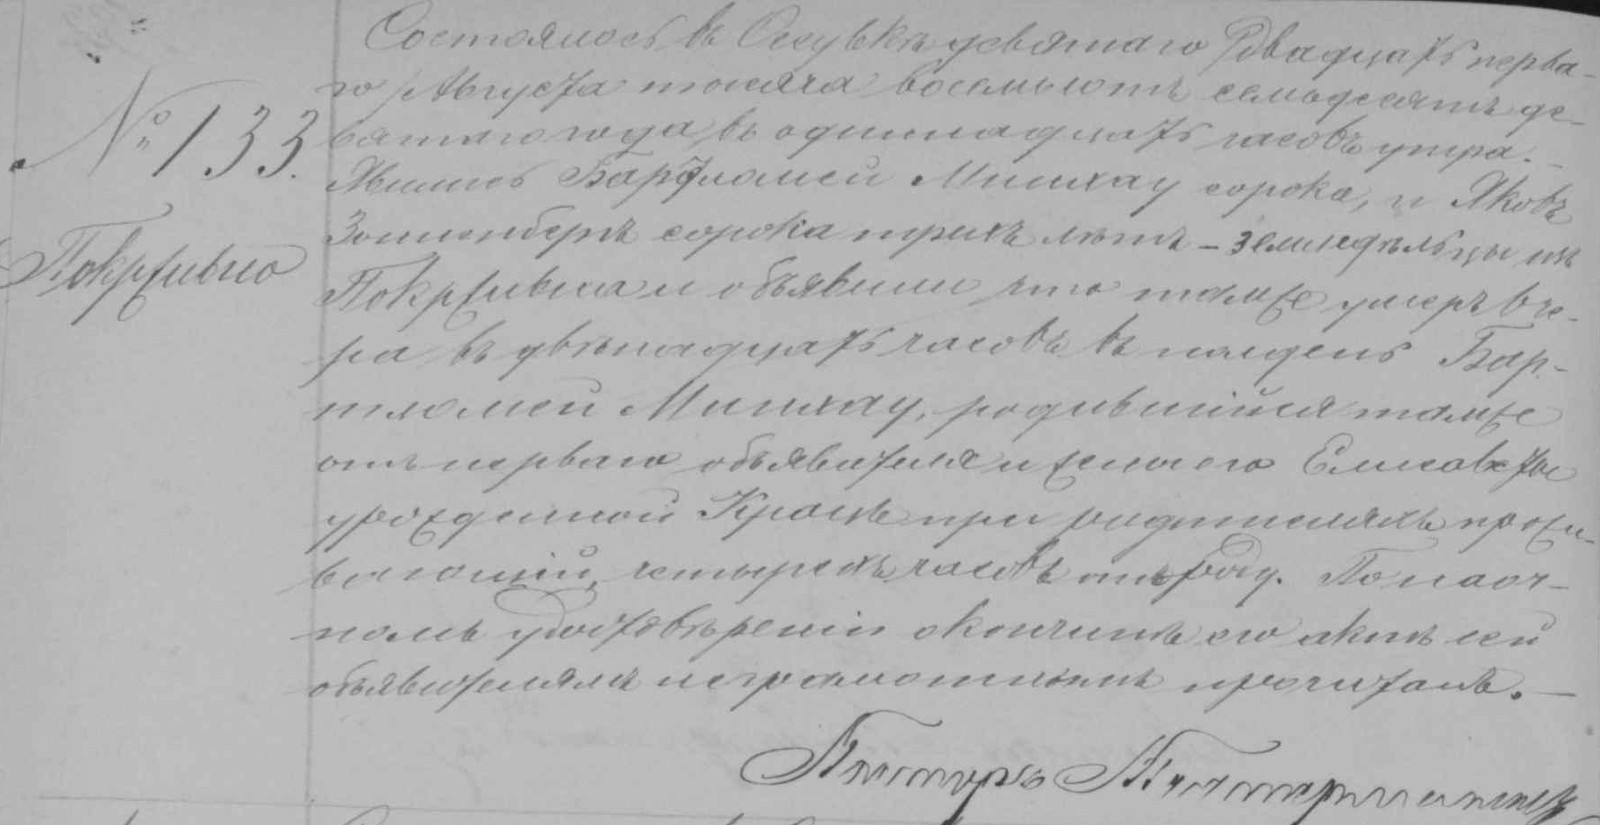 Состоялось въ Оссувкѣ девятаго /двадцать перва-
го/ Августа тысяча восемьсотъ семьдесятъ де-
вятаго года, въ одиннадцать часовъ утра. –
№ 133.
Явились Бартломей Минхау сорока, и Яковъ
Зонненбергъ сорока трехъ лѣтъ – земледѣльцы изъ
Покршивно
Покршивна и объявили что тамже умеръ вче-
ра въ двѣнадцать часовъ въ полдень Бар-
тломей Минхау, родившійся тамже
отъ перваго объявителя и жены его Елисаветы
урожденной Крацъ при родителяхъ прожи-
вающій, четырехъ часовъ отъ роду. По наоч-
номъ удостовѣреніи окончинѣ его актъ сей
объявителямъ неграмотнымъ прочитанъ. –
Пасторъ